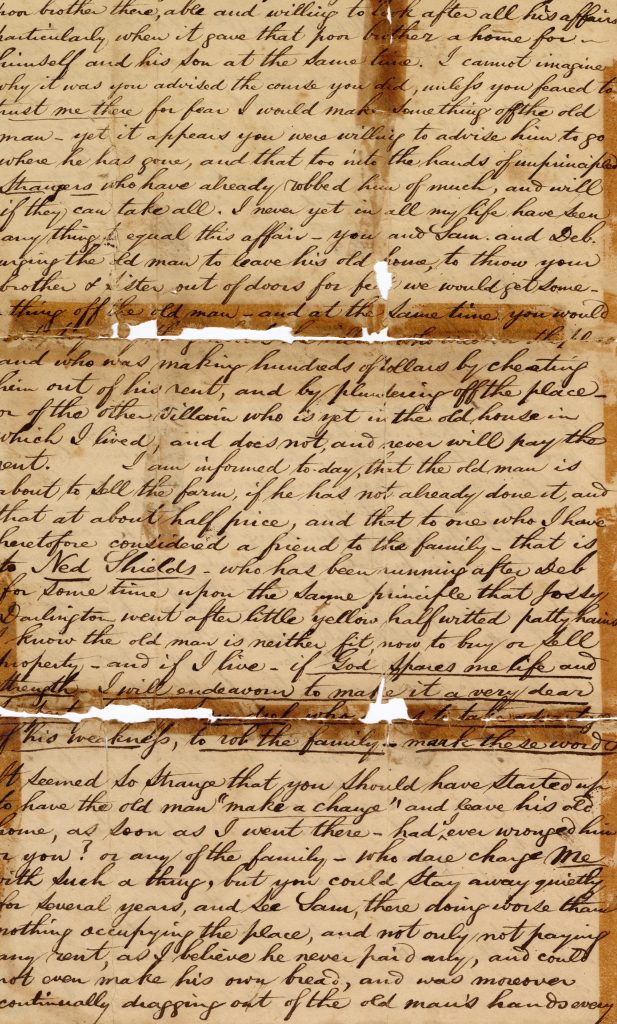 poor brother there, able and willing to look after all his affairs
particularly when it gave that poor brother a home for
himself and his son at the same time. I cannot imagine
why it was you advised the course you did, unless you feared to
trust me there for fear I would make something off the old
man - yet it appears you were willing to advise him to go
where he has gone, and that too into the hands of unprincipled
Strangers who have already robbed him of much, and will
if they can take all. I never yet in all my life have seen
any thing to equal this affair - you and Sam. and Deb.
urging the old man to leave his old home, to throw your
brother & sister out of doors for fear we would get some-
thing off the old man - and at the same time you would
and who was making hundreds of dollars by cheating
him out of his rent, and by plundering off the place -
or of the other villain who is yet in the old house in
which I lived, and does not, and never will pay the
rent. I am informed to-day, that the old man is
about to sell the farm, if he has not already done it, and
that at about half price, and that to one who I have
heretofore considered a friend to the family - that is
to Ned Shields - who has been running after Deb
for some time upon the same principle that Jossy
Darlington went after little yellow half witted patty hains
I know the old man is neither fit, now to buy or sell
property - and if I live - if God Spares me life and
strength I will endeavour to make it a very dear
who to take
of his weakness, to rob the family - mark these words
It seemed so strange that you should have started up
to have the old man "make a change" and leave his old
home, as soon as I went there - had ever wronged him
or you? or any of the family - who dare charge Me
with such a thing, but you could stay away quietly
for several years, and see Sam, there doing worse than
nothing occupying the place, and not only not paying
any rent, as I believe he never paid any, and could
not even make his own bread, and was moreover
continually dragging out of the old man's hands every